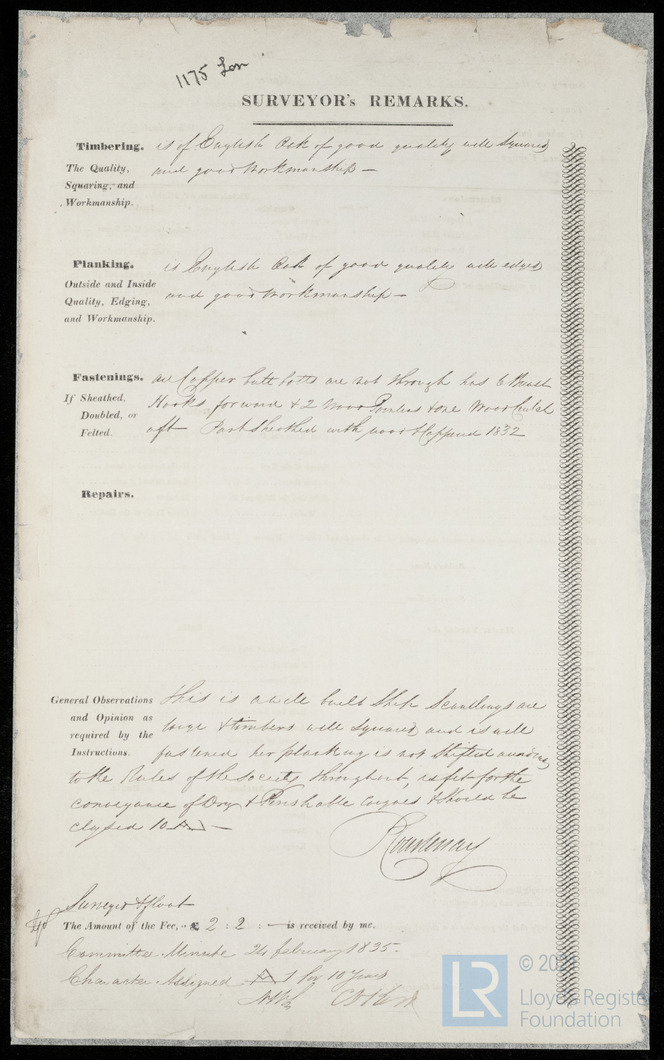 1175 Lon
SURVEYOR's REMARKS.
Timbering. is of English Oak of good quality well squared
The Quality, and good workmanship —
Squaring, and
Workmanship.
Planking. is English Oak of good quality well edged
Outside and Inside
Quality, Edging, and good workmanship —
and Workmanship.
Fastenings. are Copper butt bolts are not through has 6 Breast
If Sheathed. Hooks forward & 2 Wood Pointers & one Wood
Doubled, or
Felted. aft Part Sheathed with wood & Coppered 1832
Repairs.
General Observations This is a well built Ship Scantlings are
and Opinion as
required by the large & timbers well squared and is well
Instructions. fastened her planking is not shifted according
to the Rules of the Society throughout, is fit for the
conveyance of Dry & Perishable Cargoes & should be
classed 10 A —
Courtenay
Surveyed afloat
The Amount of the Fee, £ 2 : 2 : — is received by me.
Committee Minute 24 February 1835.
Character Assigned A 1 for 10 Years
LR
© 20
Lloyd's Register
Foundation